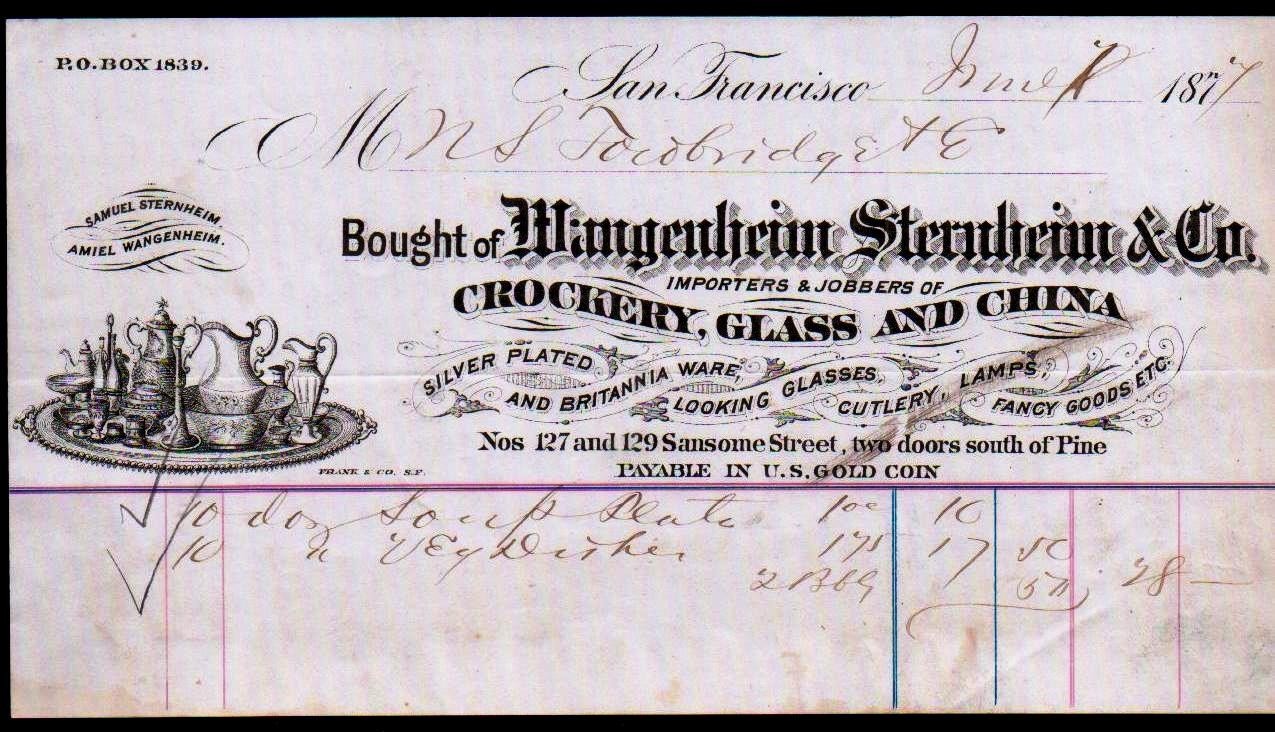 P.O. BOX 1839.
San Francisco June 1877
M N S Towbridge
SAMUEL STERNHEIM
AMIEL WANGENHEIM.
Bought of Wangenheim Sternheim & Co.
IMPORTERS & JOBBERS OF
CROCKERY, GLASS AND CHINA
SILVER PLATED
AND BRITANNIA WARE,
LOOKING GLASSES,
CUTLERY, LAMPS,
FANCY GOODS ETC.
Nos 127 and 129 Sansome Street, two doors south of Pine
PAYABLE IN U.S. GOLD COIN
FRANK & CO. S.F.
10 doz Soup Plate 100 10
10 " Veg Dishes 175 17 50
2 Bbls 50 28 —